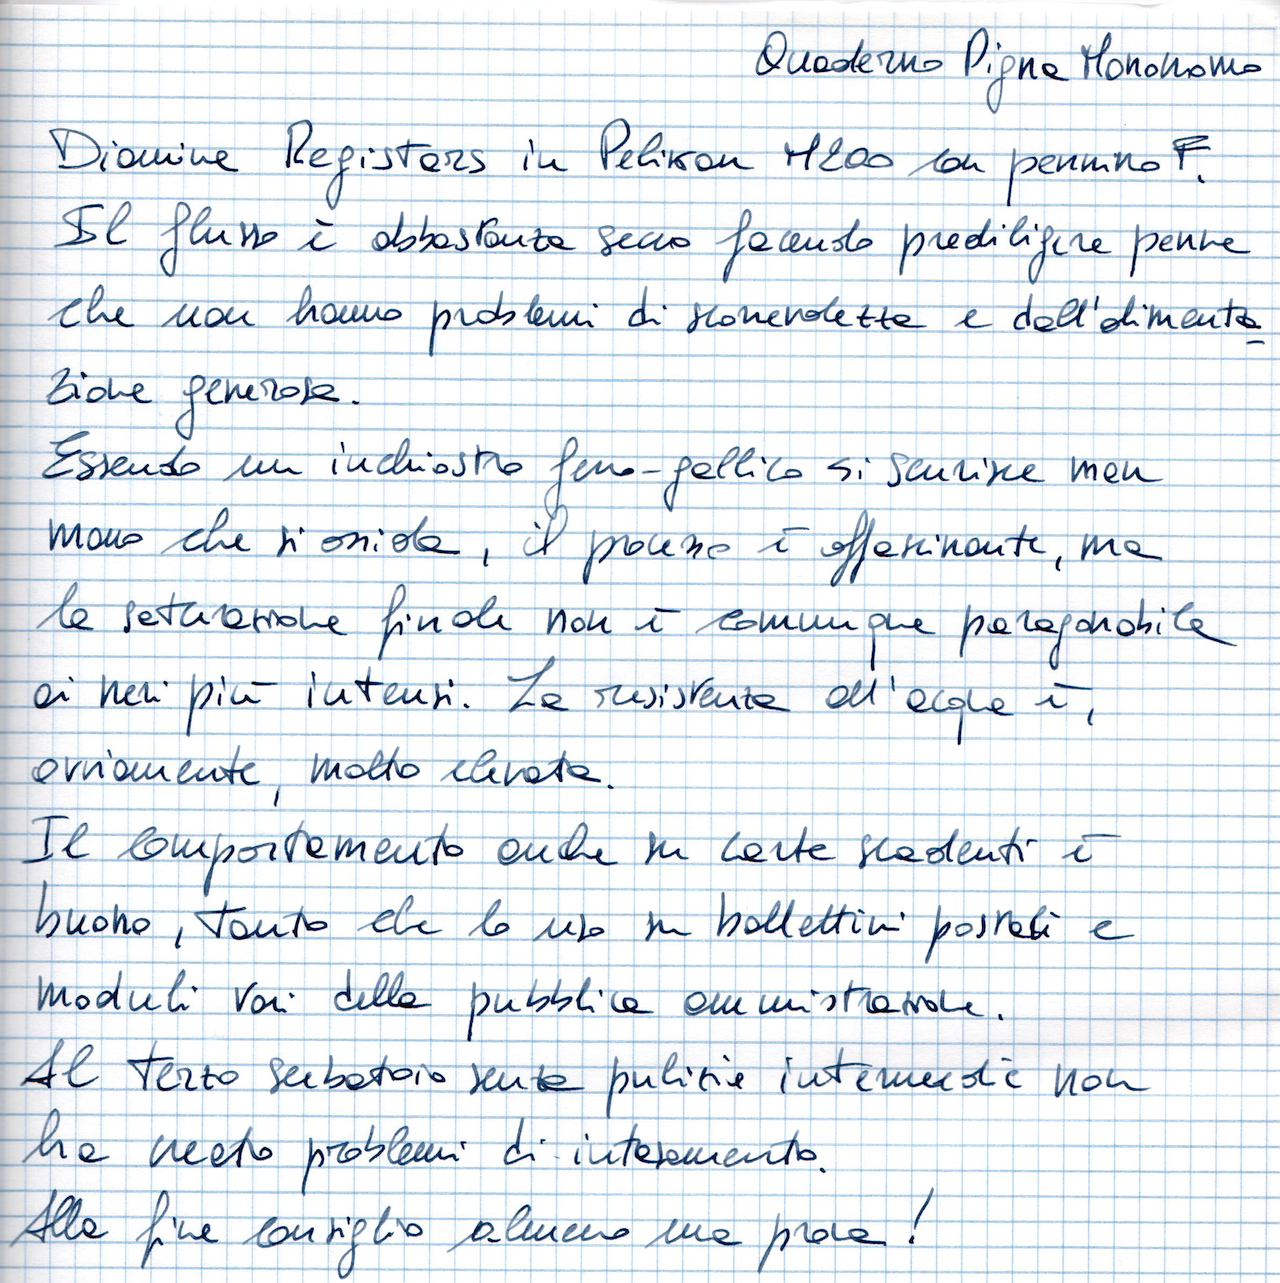 Quaderno Pigna Monocromo
Diamine Registrars in Pelikan M200 con pennino F.
Il flusso è abbastanza secco facendo prediligere penne
che non hanno problemi di scorrevolezza e dall'alimenta
zione generosa.
Essendo un inchiostro ferro-gallico si scurisce man
mano che si ossida, il processo è affascinante, ma
la saturazione finale non è comunque paragonabile
ai neri più intensi. La resistenza all'acqua è,
ovviamente, molto elevata.
Il comportamento anche su carte scadenti è
buono, tanto che lo uso su bollettini postali e
moduli vari della pubblica amministrazione.
Al terzo serbatoio senza pulizie intermedie non
ha creato problemi di intasamento.
Alla fine consiglio almeno una prova!